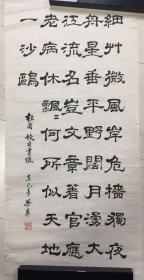 細艸微風岸危檣獨夜
舟星垂平野闊月湧大
江流名豈文章著官應
老病休飄〻何所似天地
一沙鷗
杜甫旅夜書懷